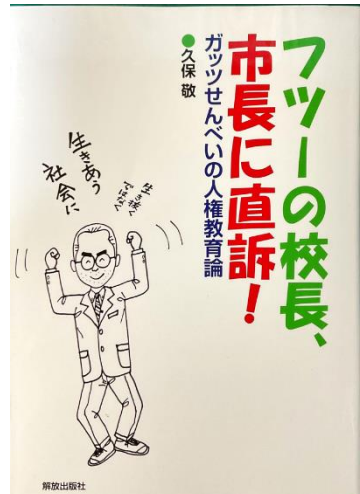 フツーの校長、
市長に直訴！
ガッツせんべいの人権教育論
●久保 敬
生き抜く
ではなく
生きあう
社会に
解放出版社